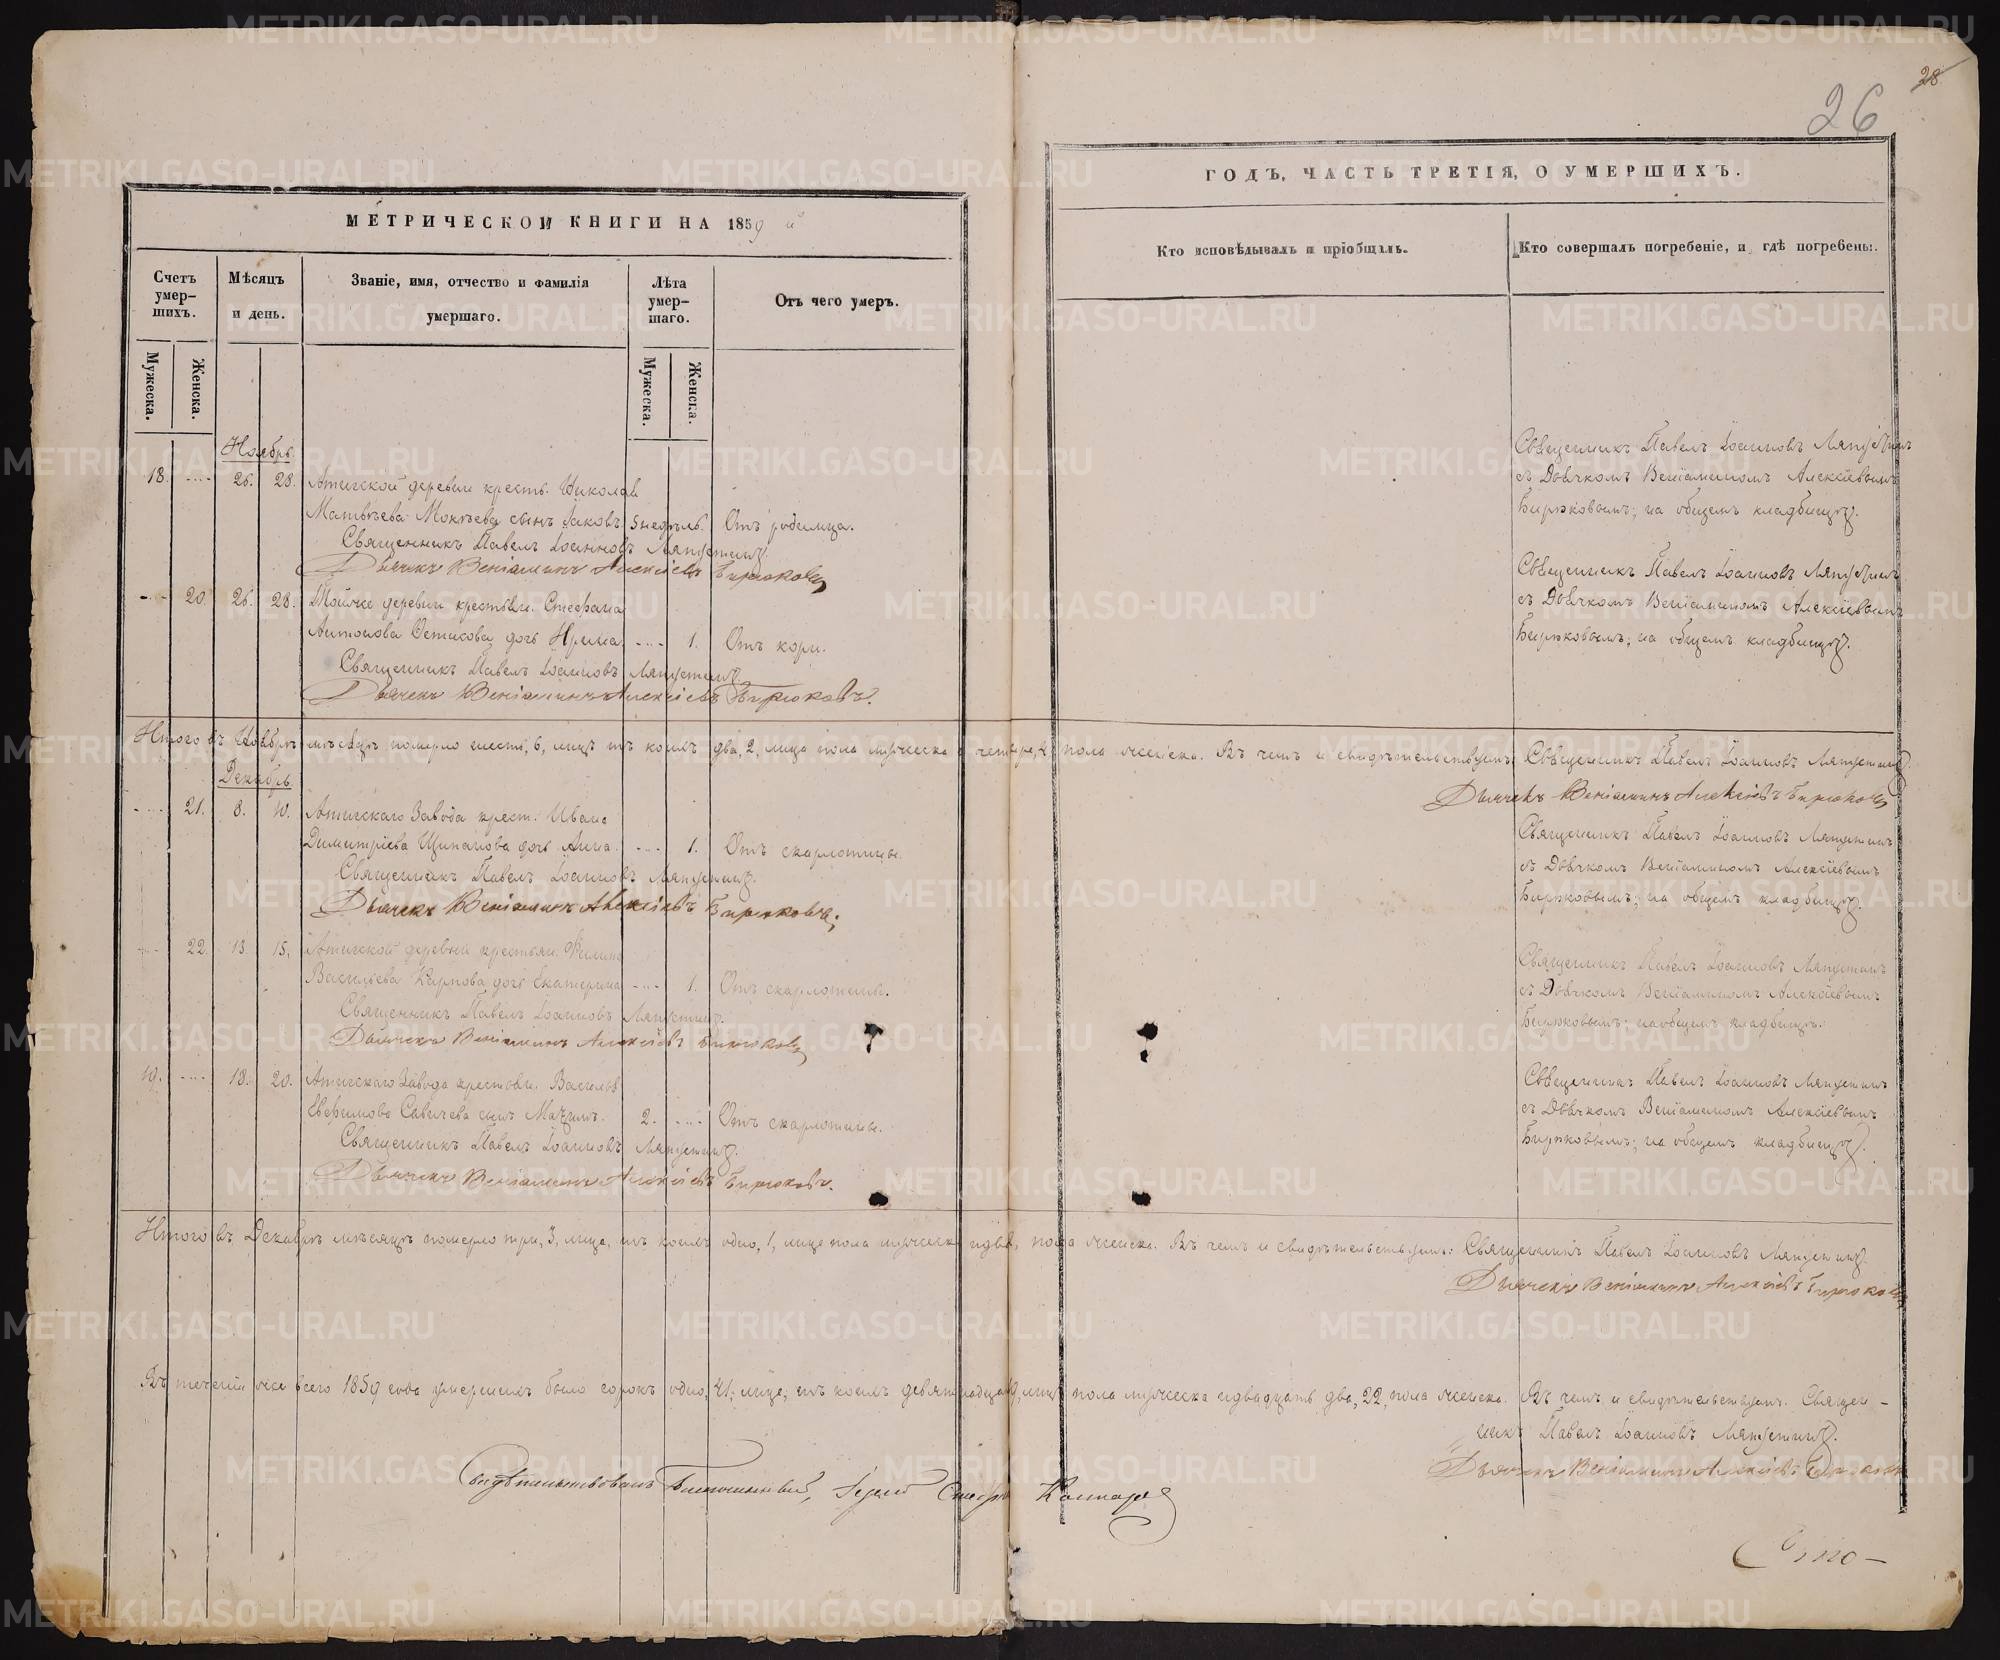 28
26
МЕТРИЧЕСКОЙ КНИГИ НА 1859 й
ГОДЪ, ЧАСТЬ ТРЕТІЯ, О УМЕРШИХЪ.
Счетъ умер-
шихъ.
Мужеска.
Женска.
Мѣсяцъ
и день.
Званіе, имя, отчество и фамилія
умершаго.
Лѣта
умер-
шаго.
Мужеска.
Женска.
Отъ чего умеръ.
Кто исповѣдывалъ и пріобщалъ.
Кто совершалъ погребеніе, и гдѣ погребены.
Ноябрь.
18. 26. 28. Атигской деревни кресть. Николая
Матвѣева сынъ Іаковъ 5 недѣль. Отъ родимца.
Священникъ Павелъ Іоанновъ Ляпустинъ.
Дьячекъ Веніаминъ Алексіевъ Бирюковъ
Священникъ Павелъ Іоанновъ Ляпустинъ
съ Дьячкомъ Веніаминомъ Алексіевымъ
Бирюковымъ; на общемъ кладбищѣ.
20. 26. 28. деревни крестьян. Стефана
Антонова дочь Ирина 1. Отъ кори.
Священникъ Павелъ Іоанновъ Ляпустинъ
Дьячекъ Веніаминъ Алексіевъ Бирюковъ.
Священникъ Павелъ Іоанновъ Ляпустинъ
съ Дьячкомъ Веніаминомъ Алексіевымъ
Бирюковымъ; на общемъ кладбищѣ.
Итого въ Ноябрѣ мѣсяцѣ померло шесть, 6, лицъ изъ коихъ два, 2, лица пола мужеска и четыре, 4, пола женска. Въ чемъ и свидѣтельствуютъ: Священникъ Павелъ Іоанновъ Ляпустинъ
Дьячекъ Веніаминъ Алексіевъ Бирюковъ
Декабрь.
21. 8. 10. Атигскаго Завода крест. Ивана
Димитріева Щипанова дочь Анна 1. Отъ скарлотины.
Священникъ Павелъ Іоанновъ Ляпустинъ.
Дьячекъ Веніаминъ Алексіевъ Бирюковъ;
Священникъ Павелъ Іоанновъ Ляпустинъ
съ Дьячкомъ Веніаминомъ Алексіевымъ
Бирюковымъ; на общемъ кладбищѣ.
22. 13. 15. Атигской деревни крестьян. Филипа
Васильева Карпова дочь Екатерина 1. Отъ скарлотины.
Священникъ Павелъ Іоанновъ Ляпустинъ.
Дьячекъ Веніаминъ Алексіевъ Бирюковъ
Священникъ Павелъ Іоанновъ Ляпустинъ
съ Дьячкомъ Веніаминомъ Алексіевымъ
Бирюковымъ; на общемъ кладбищѣ.
19. 18. 20. Атигскаго Завода крестьян. Василья
Евфимова Савичева сынъ 2. Отъ скарлотины.
Священникъ Павелъ Іоанновъ Ляпустинъ.
Дьячекъ Веніаминъ Алексіевъ Бирюковъ.
Священникъ Павелъ Іоанновъ Ляпустинъ
съ Дьячкомъ Веніаминомъ Алексіевымъ
Бирюковымъ; на общемъ кладбищѣ.
Итого въ Декабрѣ мѣсяцѣ померло три, 3, лица, изъ коихъ одно, 1, лице пола мужеска и двѣ, пола женска. Въ чемъ и свидѣтельствуютъ: Священникъ Павелъ Іоанновъ Ляпустинъ.
Дьячекъ Веніаминъ Алексіевъ Бирюковъ
Въ теченіи же всего 1859 года умершихъ было сорокъ одно, 41, лице, изъ коихъ девятнадцать, лицъ пола мужеска и двадцать два, 22, пола женска. Въ чемъ и свидѣтельствуютъ. Священ-
никъ Павелъ Іоанновъ Ляпустинъ.
Дьячекъ Веніаминъ Алексіевъ Бирюковъ
Свидѣтельствовалъ Благочинный, Іерей
METRIKI.GASO-URAL.RU